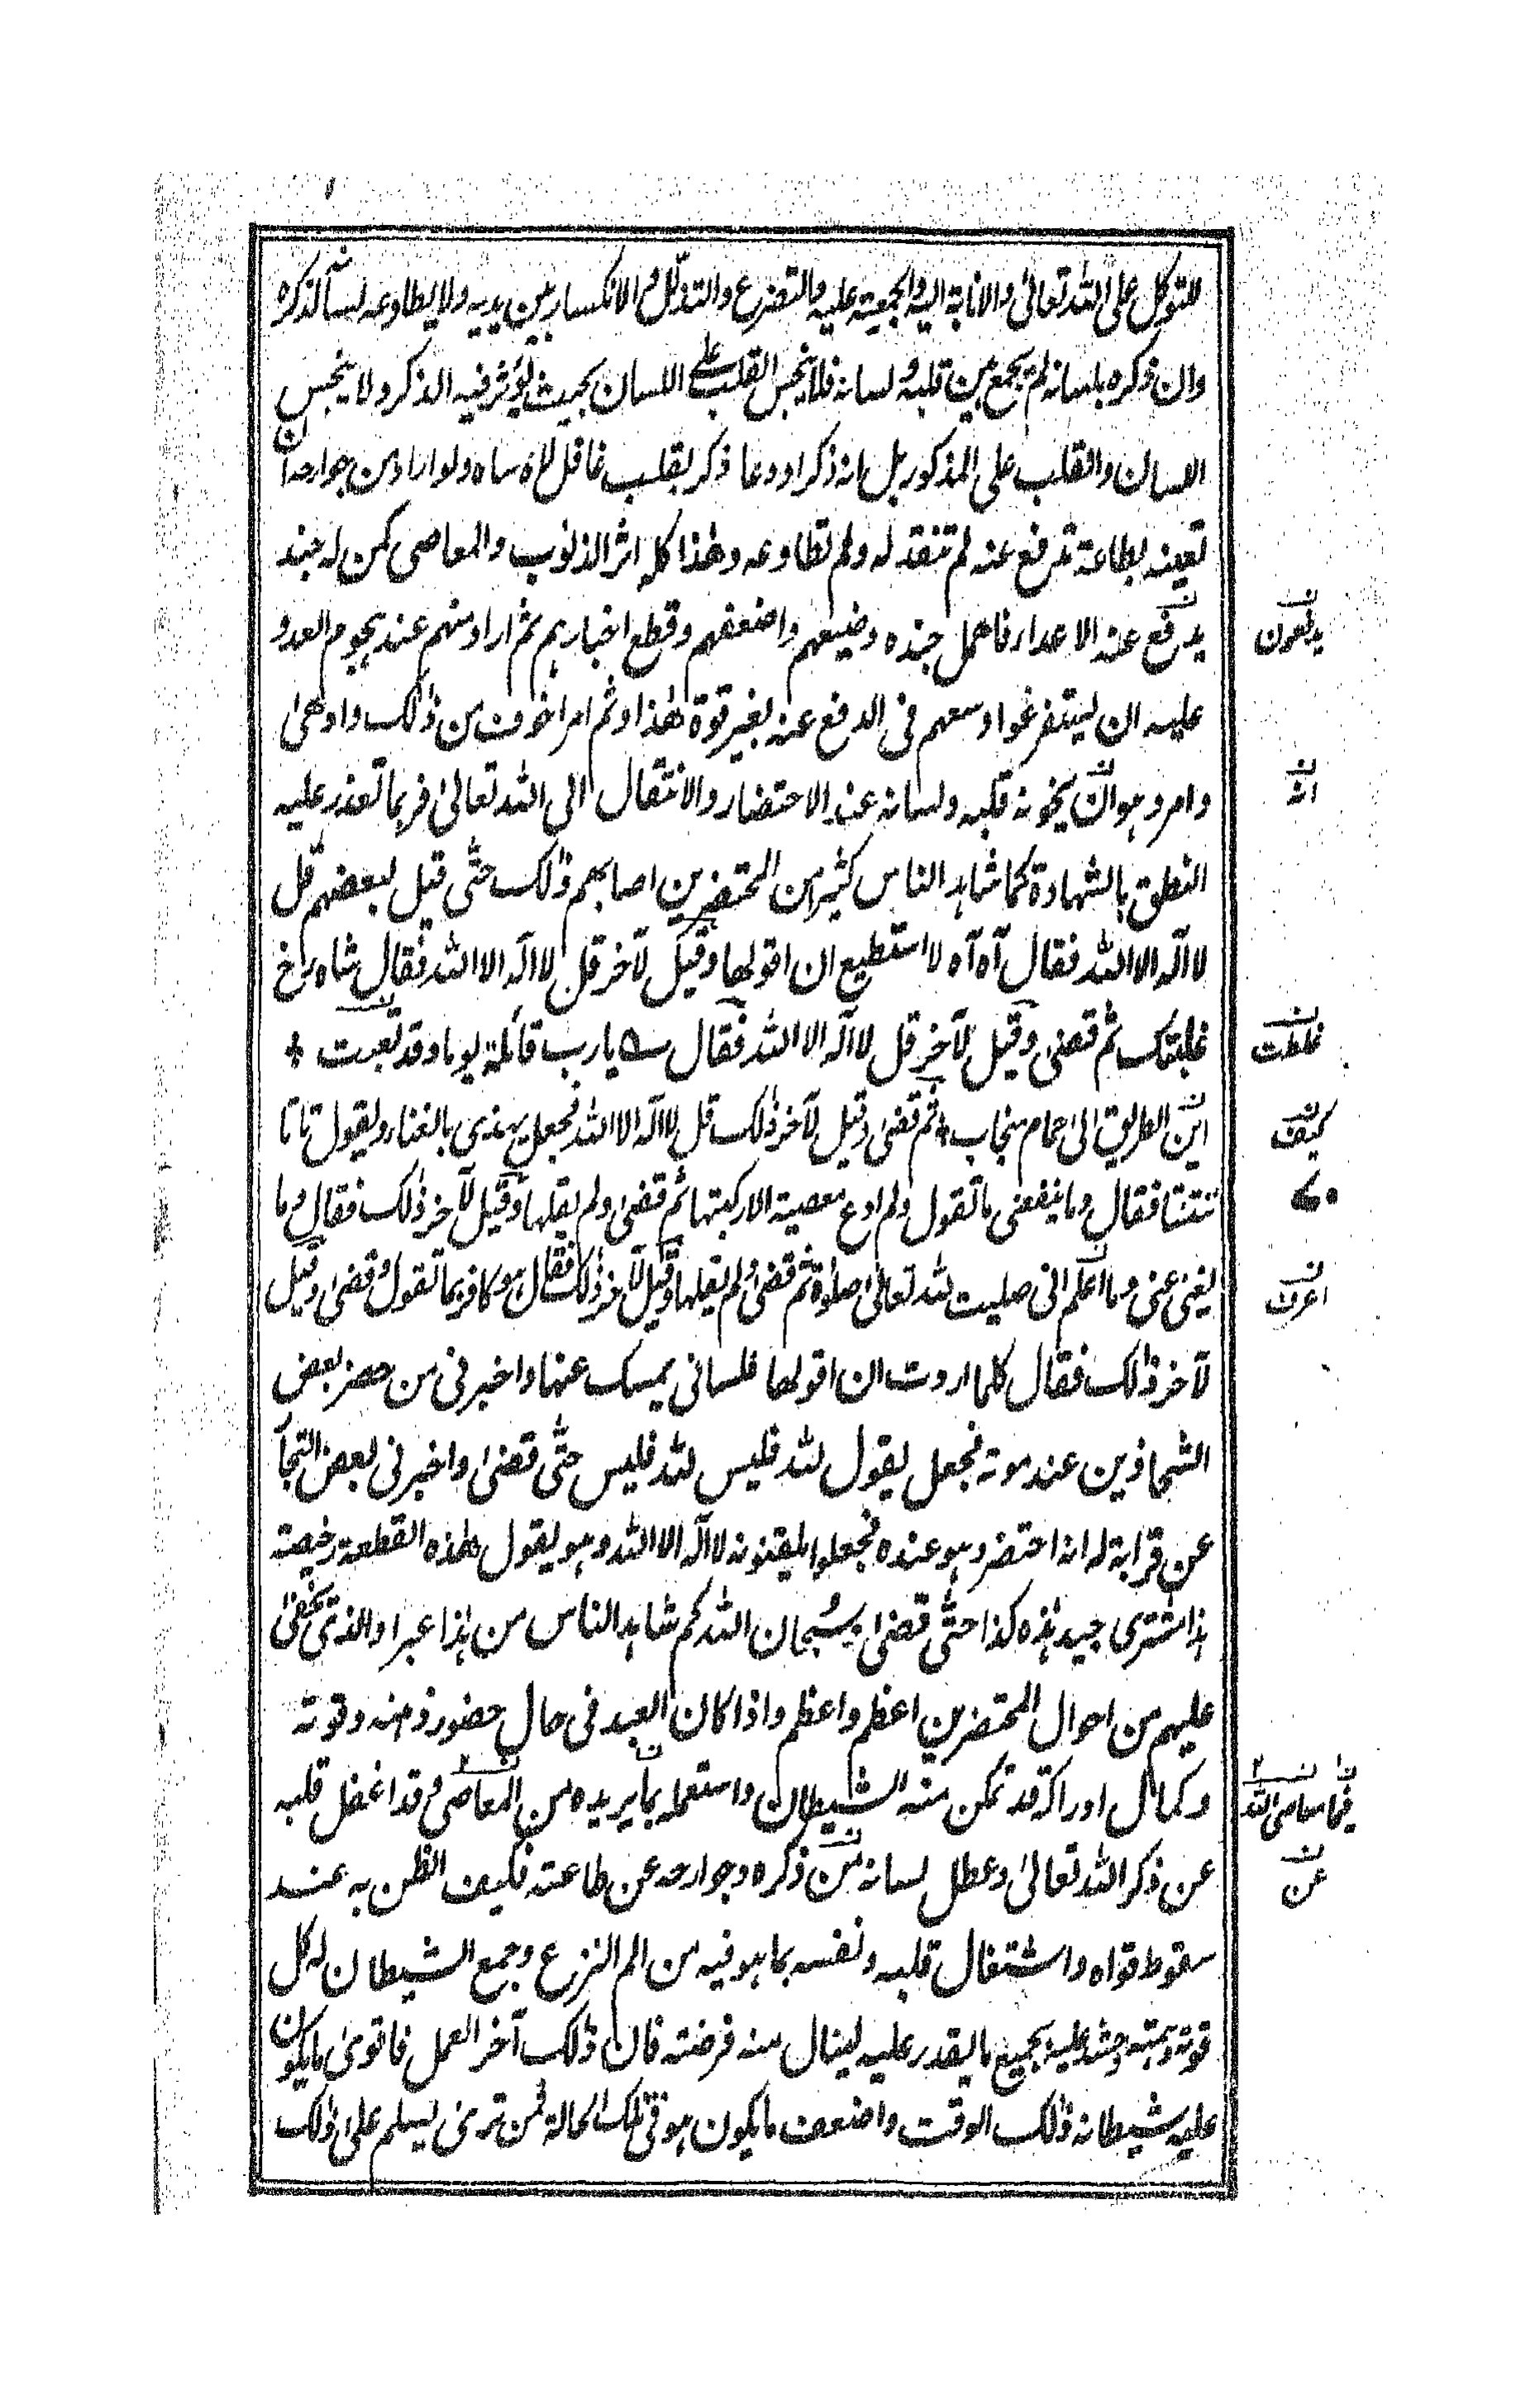 للتوكل على الله تعالى والانابة اليه والجمعية عليه والتضرع والتذلل والانكسار بين يديه ولا يطاوعه لسانه لذكره
وان ذكره بلسانه لم يجمع بين قلبه ولسانه فلا ينحبس القلب على اللسان بحيث يؤثر فيه الذكر ولا ينحبس
اللسان والقلب على المذكور بل انه ذكر او دعا ذكر بقلب غافل لاه ساه ولو اراد من جوارحه ان
تعينه بطاعة تدفع عنه لم تنقد له ولم تطاوعه وهذا كله اثر الذنوب والمعاصى كمن له جند
يدفع عنه الاعداء فاهمل جنده وضيعهم واضعفهم وقطع اخبارهم ثم اراد منهم عند هجوم العدو
عليه ان يستفرغوا وسعهم فى الدفع عنه بغير قوة هذا وثم امر اخوف من ذلك وادهى
وامر وهو ان يخونه قلبه ولسانه عند الاحتضار والانتقال الى الله تعالى فربما تعذر عليه
النطق بالشهادة كما شاهد الناس كثيرا من المحتضرين اصابهم ذلك حتى قيل لبعضهم قل
لا اله الا الله فقال آه آه لا استطيع ان اقولها وقيل لآخر قل لا اله الا الله فقال شاه رخ
غلبتك ثم قضى وقيل لآخر قل لا اله الا الله فقال ؎ يا رب قائلة يوما وقد تعبت ٭
اين الطريق الى حمام منجاب ٭ ثم قضى وقيل لآخر ذلك قل لا اله الا الله فجعل يهذى بالغناء ويقول تاتا
تنتنا فقال وما ينفعنى ما تقول ولم ادع معصية الا ركبتها ثم قضى ولم يقلها وقيل لآخر ذلك فقال وما
يغنى عنى وما اعلم انى صليت لله تعالى صلوة ثم قضى ولم يقلها وقيل لآخر ذلك فقال هو كافر بما تقول وقضى وقيل
لآخر ذلك فقال كلما اردت ان اقولها فلسانى يمسك عنها واخبرنى من حضر بعض
الشحاذين عند موته فجعل يقول لله فليس لله فليس حتى قضى واخبرنى بعض التجار
عن قرابة له انه احتضر وهو عنده فجعلوا يلقنونه لا اله الا الله وهو يقول هذه القطعة رخيصة
هذا مشترى جيد هذه كذا حتى قضى وسبحان الله كم شاهد الناس من هذا عبرا والذى يخفى
عليهم من احوال المحتضرين اعظم واعظم واذا كان العبد فى حال حضور ذهنه وقوته
وكمال ادراكه قد تمكن منه الشيطان واستعمله بما يريده من المعاصى وقد اغفل قلبه
عن ذكر الله تعالى وعطل لسانه من ذكره وجوارحه عن طاعته فكيف الظن به عند
سقوط قواه واشتغال قلبه ونفسه بما هو فيه من الم النزع وجمع الشيطان له كل
قوته وهمته وحشد عليه بجميع ما يقدر عليه لينال منه فرصته فان ذلك آخر العمل فاقوى ما يكون
عليه شيطانه ذلك الوقت واضعف ما يكون هو فى تلك الحالة فمن ترى يسلم على ذلك
يدفعون
انه
غلطت
كيف
اعرف
فيما معاصى الله
عن